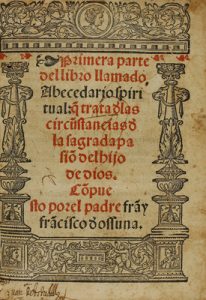 Primera parte
del libro llamado
Abecedario spiri
tual: q̃ trata d̃ las
circũstancias d̃
la sagrada pa
siõ del hijo
de dios.
Cõpue
sto por el padre fray
frãcisco d̃ ossuna.